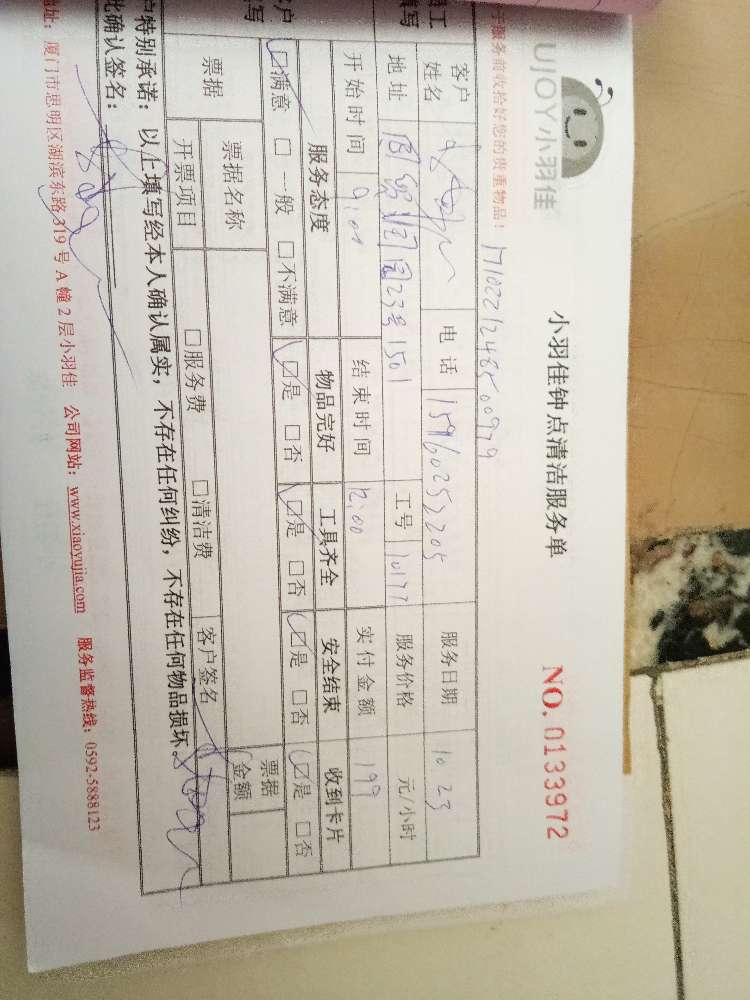 UJOY小羽佳
小羽佳钟点清洁服务单
NO. 0133972
于服务前收拾好您的贵重物品！
客户姓名 电话 15960252205 服务日期 10 23
地址 23号1501 工号 10177 服务价格 元/小时
开始时间 9:01 结束时间 12:00 实付金额 199
服务态度 物品完好 工具齐全 安全结束 收到卡片
☑满意 □一般 □不满意 ☑是 □否 ☑是 □否 ☑是 □否 ☑是 □否
票据 票据名称 票据金额
开票项目 □服务费 □清洁费 客户签名
户特别承诺：以上填写经本人确认属实，不存在任何纠纷，不存在任何物品损坏。
此确认签名：
地址：厦门市思明区湖滨东路319号A幢2层小羽佳 公司网站：www.xiaoyujia.com 服务监督热线：0592-5888123